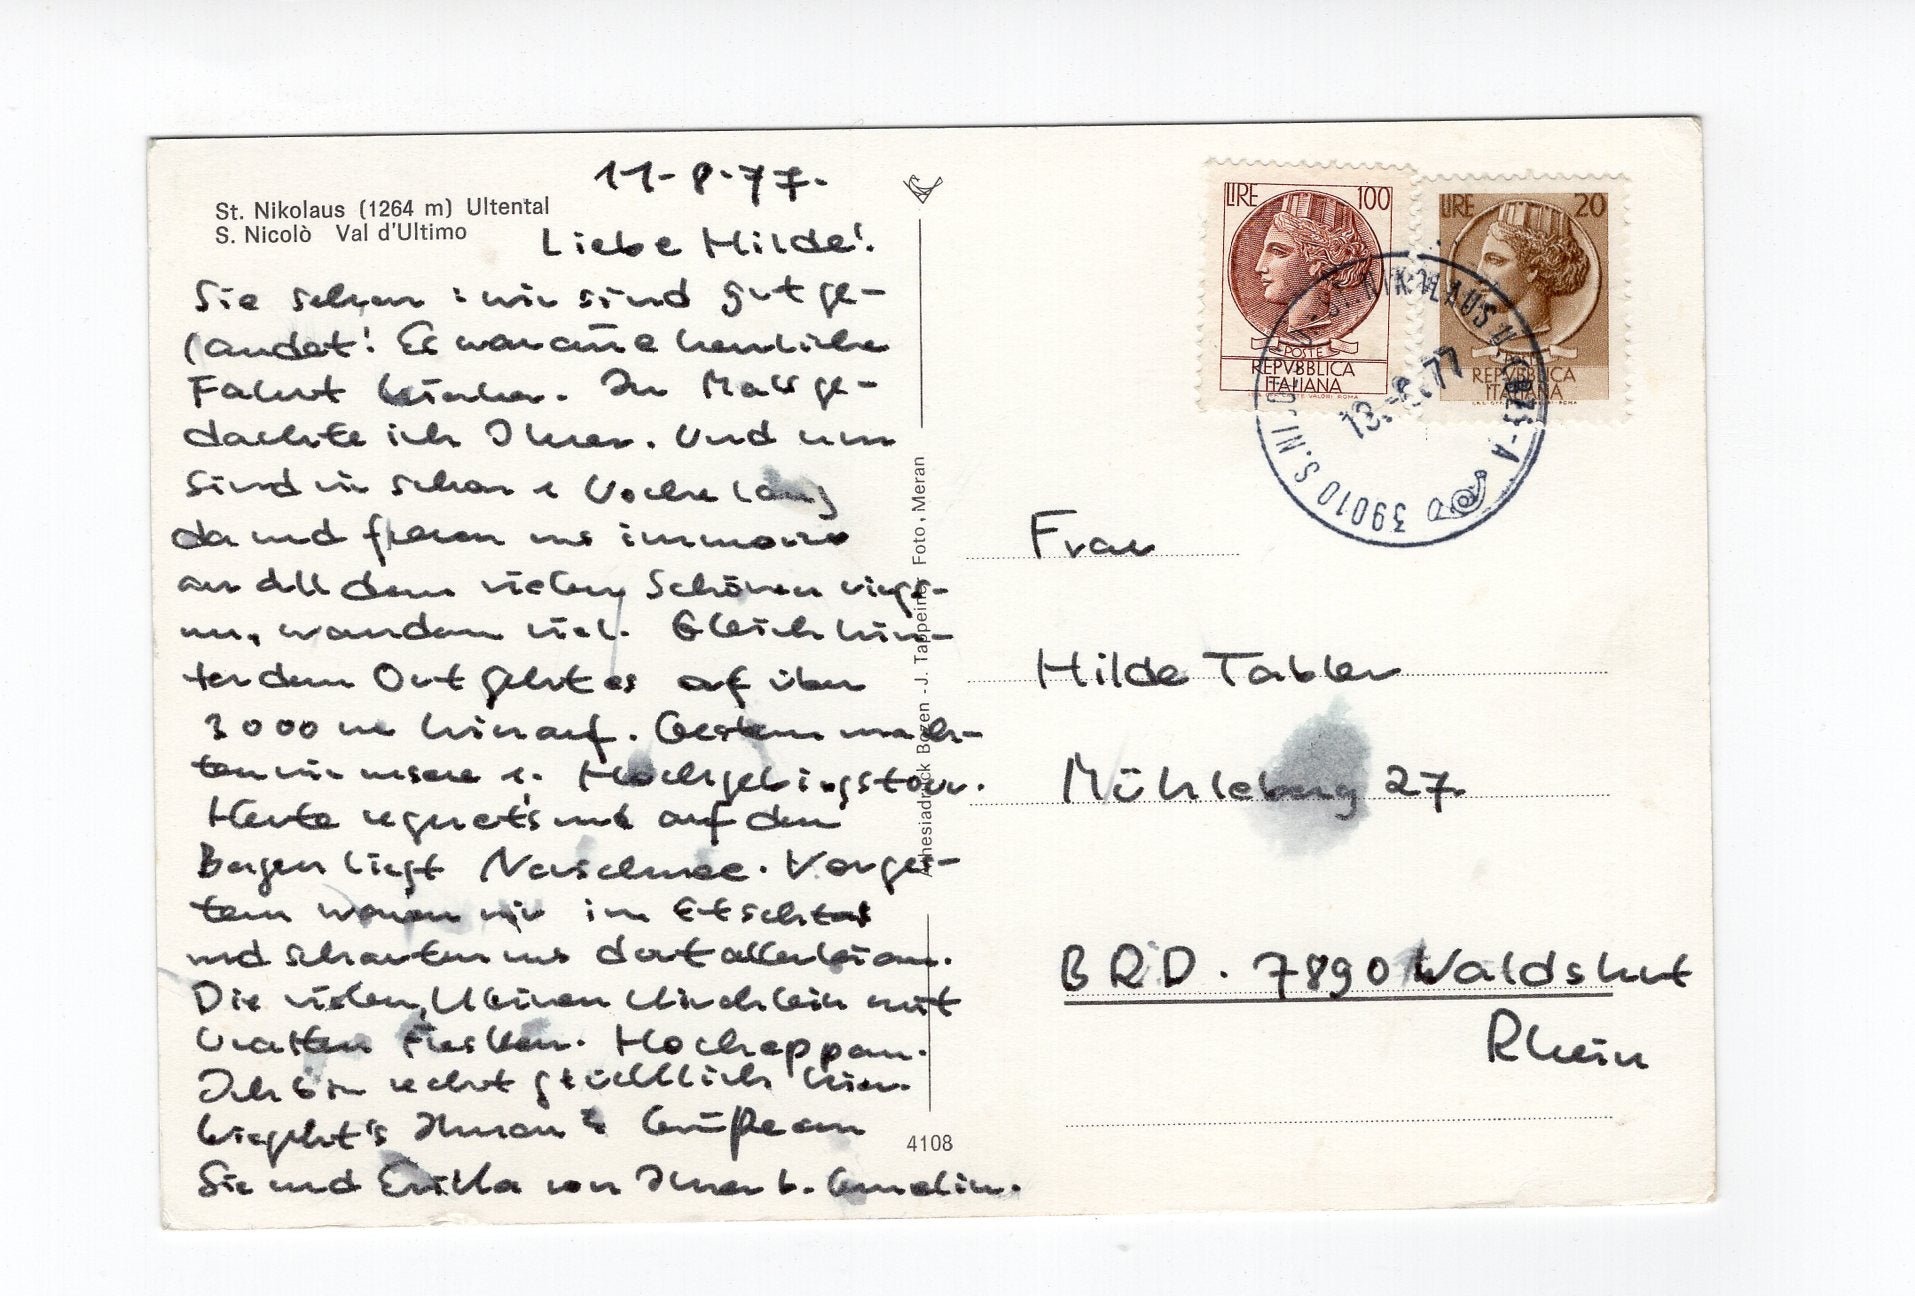 St. Nikolaus (1264 m) Ultental
S. Nicolò Val d'Ultimo
11-8-77.
Liebe Hilde!
Sie sehen: wir sind gut ge-
landet! Es war eine herrliche
Fahrt hierher. In Mals ge-
dachte ich Ihrer. Und nun
sind wir schon e Woche lang
da und freuen uns immerzu
an all dem vielen Schönen
wandern viel. Gleich hin-
ter dem Ort geht es auf über
3000 m hinauf. Gestern mach-
ten wir unsere 1. Hochgebirgstour.
Heute regnet's und auf den
Bergen liegt Neuschnee. Vorges-
tern waren wir im Etschtal
und schauten uns dort allerlei an.
Die vielen kleinen Kirchlein mit
uralten Fresken. Hocheppan.
Ich bin recht glücklich hier.
Wie geht's Ihnen? Grüße an
Sie und Erika von Ihrer b.
Athesiadruck Bozen - J. Tappeiner Foto, Meran
4108
LIRE 100
POSTE
REPVBBLICA
ITALIANA
LIRE 20
POSTE
REPVBBLICA
ITALIANA
39010 S. NICOLO - ST. NIKOLAUS
13.-8.77
Frau
Hilde Tabler
Mühleberg 27
BRD. 7890 Waldshut
Rhein